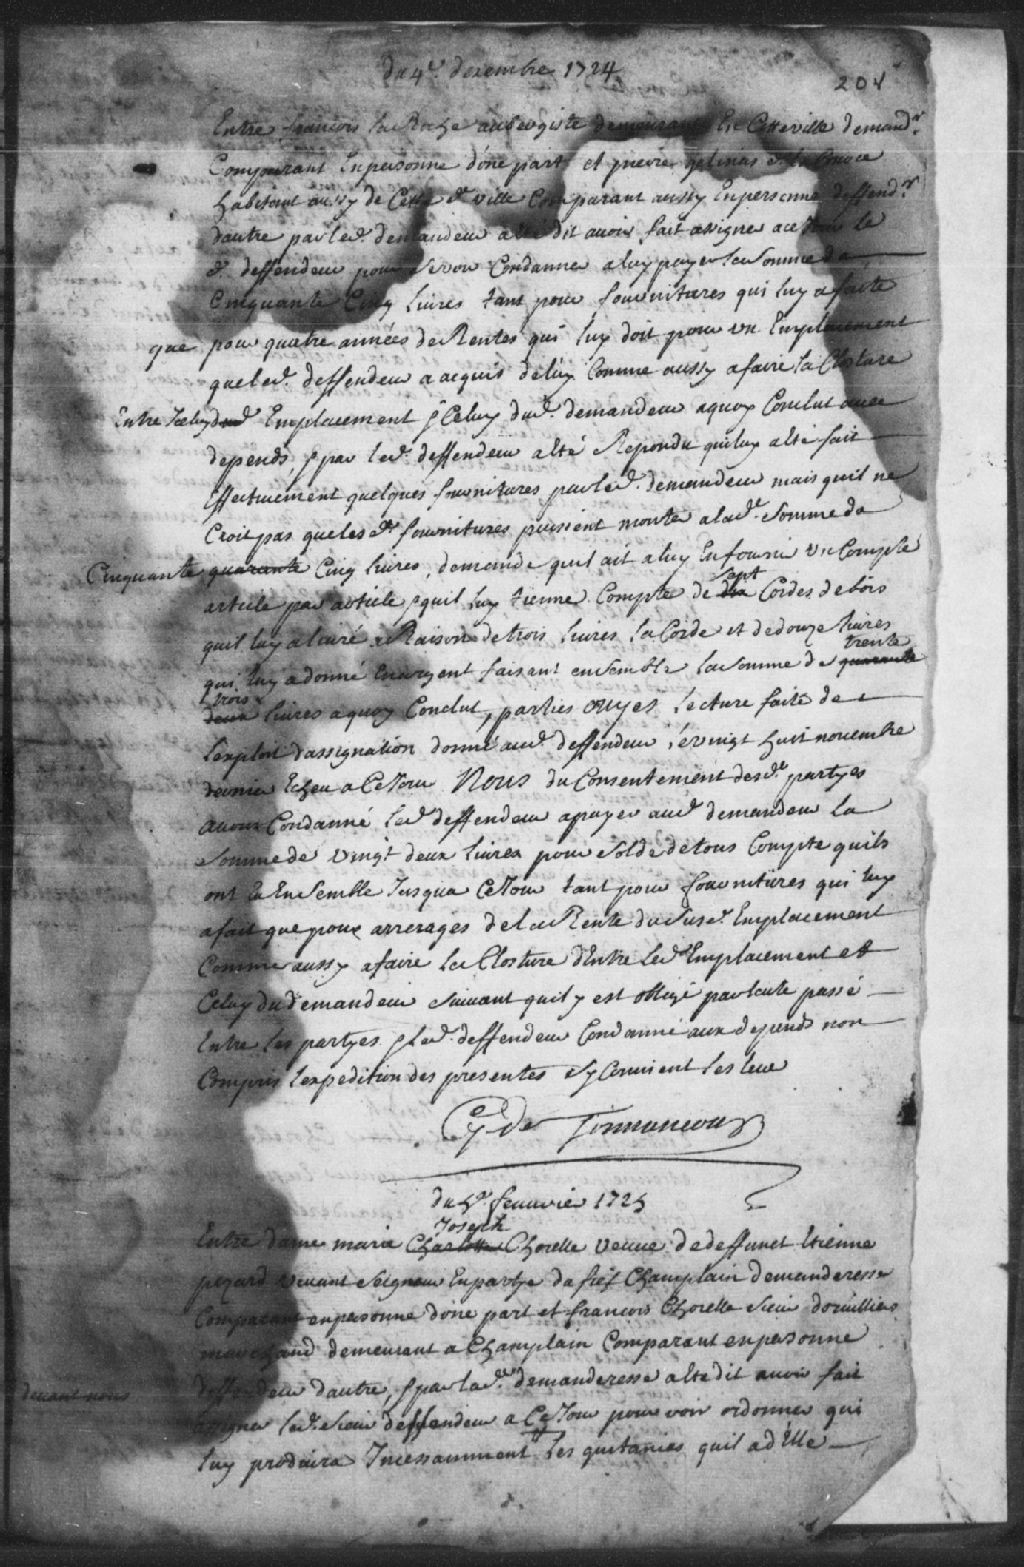 du 4e. decembre 1724
201
Entre francois La Roche aubergiste demeurant En Cette ville demandr.
Comparant Enpersonne d'one part et pierre gelinas
habitant aussy de Cette de. ville Comparant aussy Enpersonne deffendr.
dautre par led. demandeur a este dit avoir fait assigne a ce Jour le
d. deffendeur pour se voir Condanne a luy payer la somme de
Cinquante Cinq livres tant pour fournitures qui luy a faite
que pour quatre années de Rentes qui luy doit pour un Emplacement
que led. deffendeur a acquis de luy Comme aussy a faire la Closture
Entre Iceluy Emplacement & Celuy dud. demandeur aquoy Conclut avec
depends, & par led. deffendeur a esté Repondu qui luy a esté fait
Effectivement quelques fournitures par led. demandeur mais quil ne
Croit pas que les de. fournitures puissent monter a lad. Somme de
Cinquante quarante Cinq livres, demande quil ait a luy En fournir un Compte
article par article & quil luy tienne Compte de sept Cordes de bois
quil luy a livré a Raison de trois livres la Corde et de douze livres
qui luy a donné En argent faisant ensemble la somme de quarante trente
deux trois livres aquoy Conclut, parties ouyes Lecture faite de
Lexploit dassignation donné aud. deffendeur le vingt huit novembre
dernier Echeu a Ce Jour Nous du Consentement desd. partyes
avons Condanné led. deffendeur a payer aud. demandeur la
Somme de vingt deux livres pour solde de tous Compte quils
ont Eu Ensemble Jusqua Ce Jour tant pour fournitures qui luy
a fait que pour arrerages de la Rente du susd. Emplacement
Comme aussy a faire la Closture d'Entre led. Emplacement et
Celuy du demandeur suivant quil y est obligé par lacte passé
Entre les partyes & led. deffendeur Condanné aux depends non
Compris lexpedition des presentes
G de Tonnancour
du 5e. feuvrier 1725
Entre dame marie Charlotte Joseph Chorelle veuve de deffunct Etienne
pezard vivant Seigneur En partye du fief Champlain demanderesse
Comparant enpersonne d'one part et francois Chorelle sieur dorvilliers
marchand demeurant a Champlain Comparant enpersonne
deffendeur dautre, & par lad. demanderesse a esté dit avoir fait
devant nous
assigner led. sieur deffendeur a Ce Jour pour voir ordonner qui
luy produira Incessamment les quitances quil a d'Elle